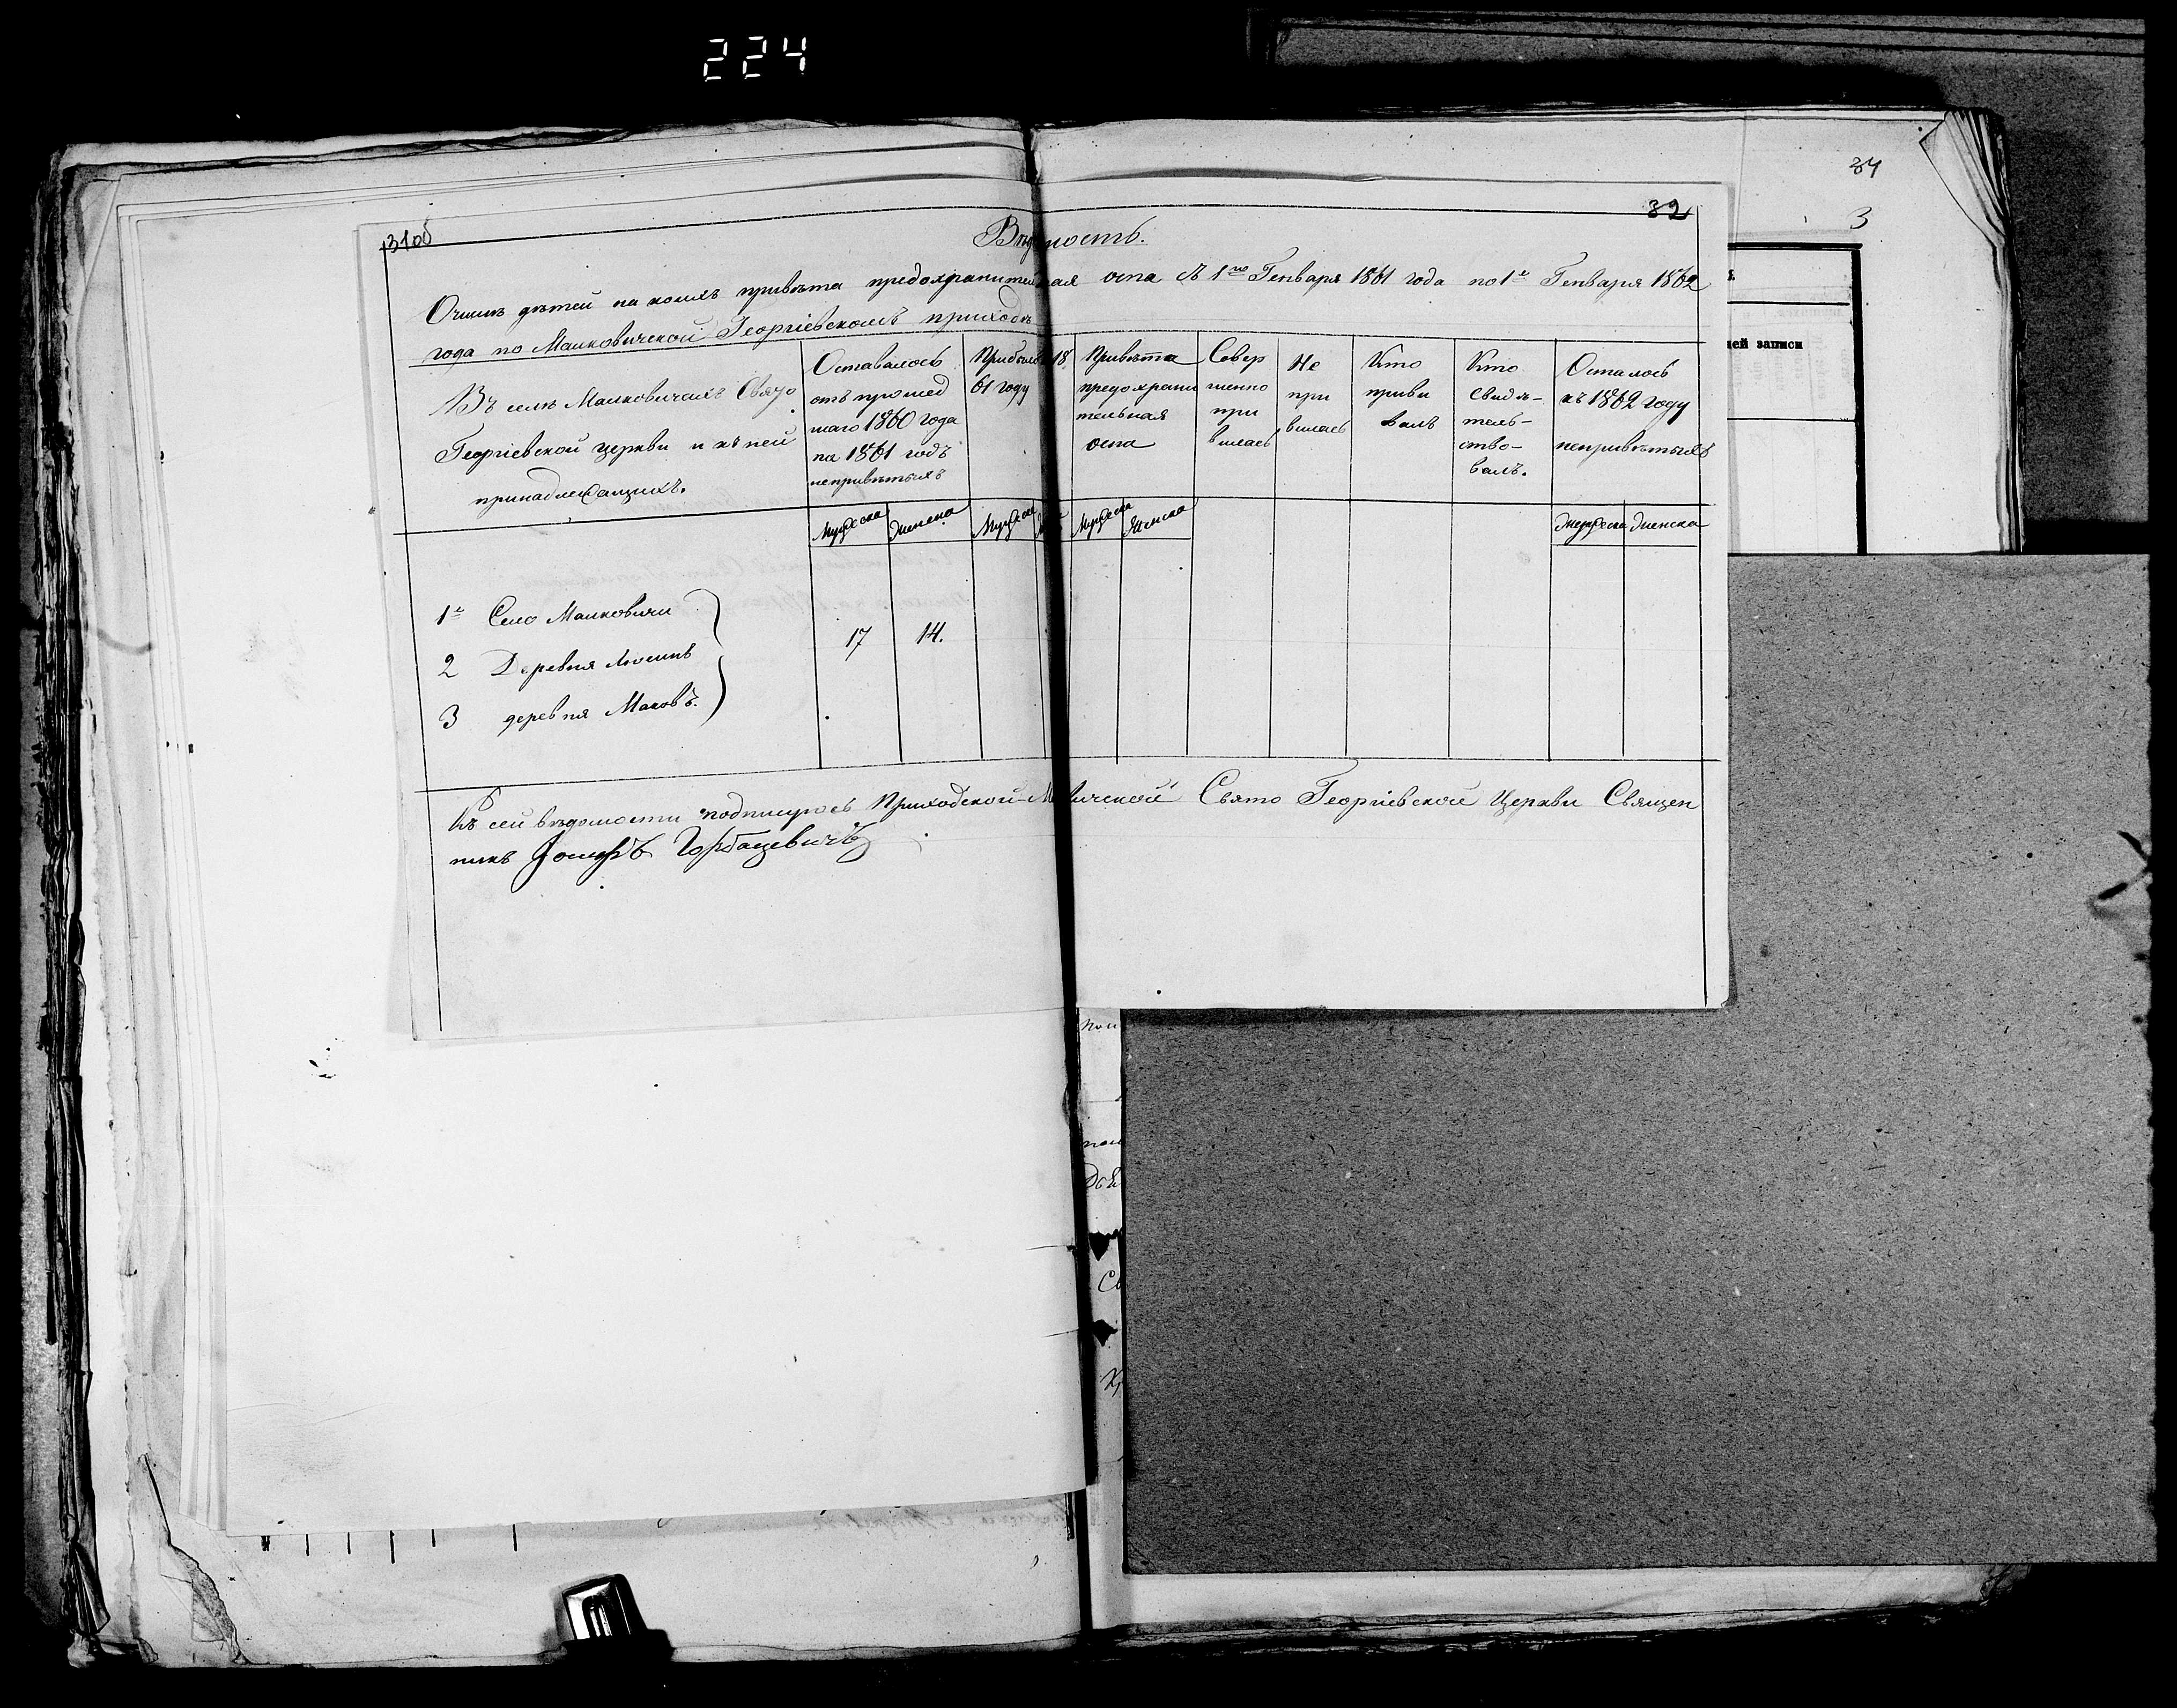 224
34
3
31об
32
Вѣдомость.
О числѣ дѣтей на коихъ привѣта предохранительная оспа съ 1го Генваря 1861 года по 1е Генваря 1862
года по Малковичской Георгіевскомъ приходѣ
Въ селѣ Малковичахъ Свято
Георгіевской церкви и къ ней
принадлежащихъ.
Оставалось
отъ прошед
шаго 1860 года
на 1861 годъ
непривѣтыхъ
Прибыло 18
61 году
Привѣта
предохрани
тельная
оспа
Совер
шенно
при
вилась
Не
при
вилась
Кто
приви
валъ
Кто
свидѣ-
тель-
ство-
валъ.
Осталось
къ 1862 году
непривѣтыхъ
Мужеска Женска Мужеска Мужеска Женска Мужеска Женска
1е Село Малковичи
17 14.
2 Деревня Люсинъ
3 деревня Маковъ.
Къ сей вѣдомости подписуюсь Приходской Свято Георгіевской Церкви Священ
никъ Іосифъ Горбацевичъ
ей записи